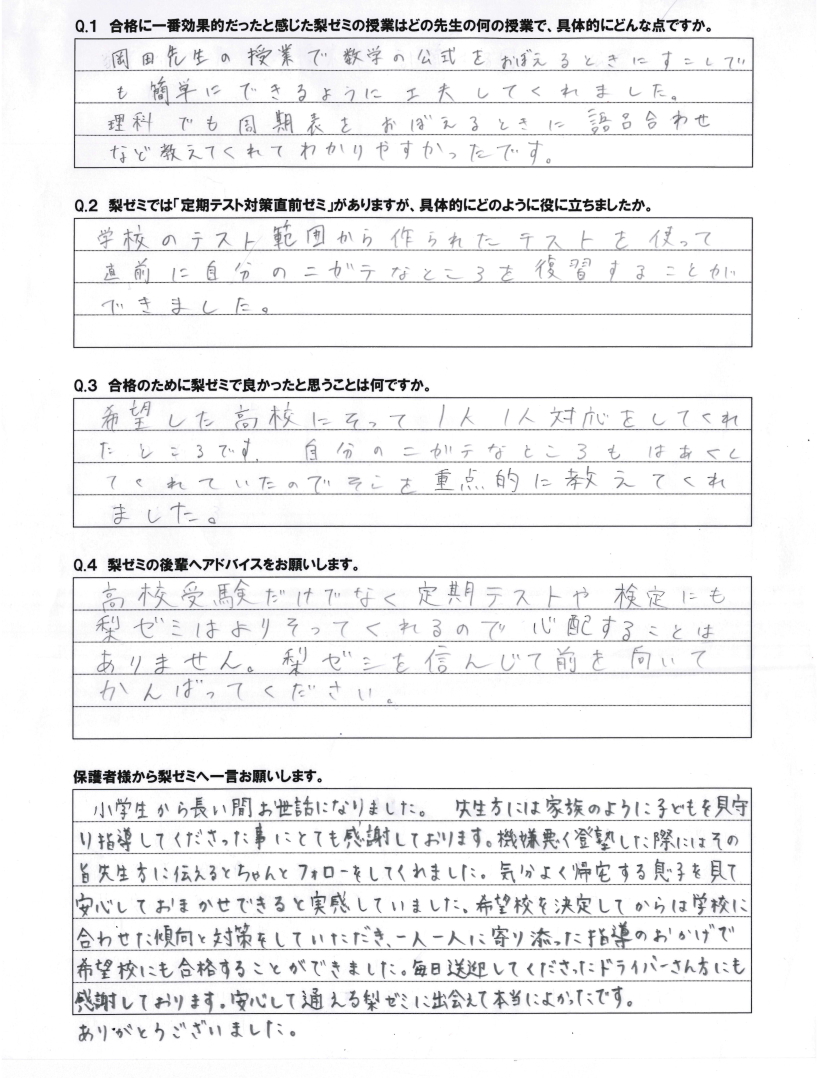 Q.1 合格に一番効果的だったと感じた梨ゼミの授業はどの先生の何の授業で、具体的にどんな点ですか。
岡田先生の授業で数学の公式をおぼえるときにすこしで
も簡単にできるように工夫してくれました。
理科でも周期表をおぼえるときに語呂合わせ
など教えてくれてわかりやすかったです。
Q.2 梨ゼミでは「定期テスト対策直前ゼミ」がありますが、具体的にどのように役に立ちましたか。
学校のテスト範囲から作られたテストを使って
直前に自分のニガテなところを復習することが
できました。
Q.3 合格のために梨ゼミで良かったと思うことは何ですか。
希望した高校にそって1人1人対応をしてくれ
たところです。自分のニガテなところもはあくし
てくれていたのでそこを重点的に教えてくれ
ました。
Q.4 梨ゼミの後輩へアドバイスをお願いします。
高校受験だけでなく定期テストや検定にも
梨ゼミはよりそってくれるので心配することは
ありません。梨ゼミを信んじて前を向いて
がんばってください。
保護者様から梨ゼミへ一言お願いします。
小学生から長い間お世話になりました。先生方には家族のように子どもを見守
り指導してくださった事にとても感謝しております。機嫌悪く登塾した際にはその
旨先生方に伝えるとちゃんとフォローをしてくれました。気分よく帰宅する息子を見て
安心しておまかせできると実感していました。希望校を決定してからは学校に
合わせた傾向と対策をしていただき、一人一人に寄り添った指導のおかげで
希望校にも合格することができました。毎日送迎してくださったドライバーさん方にも
感謝しております。安心して通える梨ゼミに出会えて本当によかったです。
ありがとうございました。